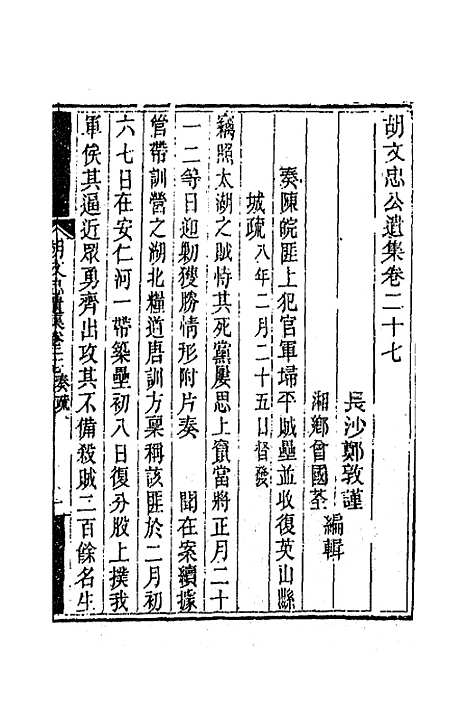 胡文忠公遺集卷二十七
長沙鄭敦謹
湘鄉曾國荃
編輯
奏陳皖匪上犯官軍埽平賊壘並收復英山縣
城疏 八年二月二十五日督發
竊照太湖之賊恃其死黨屢思上竄當將正月二十
一二等日迎勦獲勝情形附片奏 聞在案續據
管帶訓營之湖北糧道唐訓方稟稱該匪於二月初
六七日在安仁河一帶築壘初八日復分股上撲我
軍俟其逼近眾勇齊出攻其不備殺賊三百餘名生
胡文忠遺集卷二十七 奏疏 一